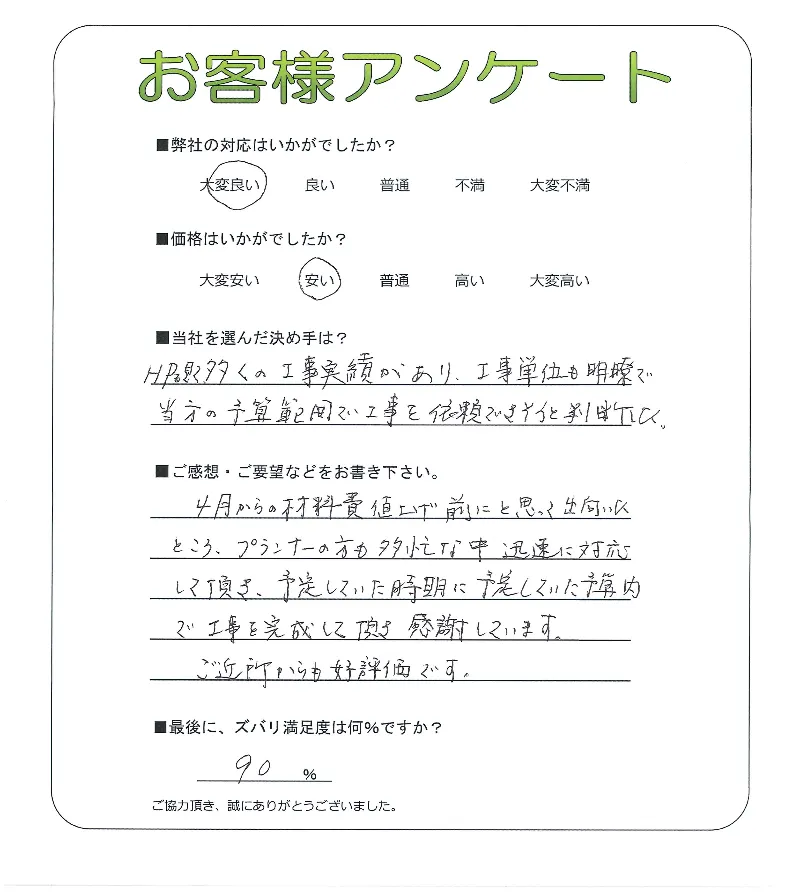 お客様アンケート
■弊社の対応はいかがでしたか？
大変良い 良い 普通 不満 大変不満
■価格はいかがでしたか？
大変安い 安い 普通 高い 大変高い
■当社を選んだ決め手は？
HP観 多くの工事実績があり、工事単位も明瞭で
当方の予算範囲で工事を依頼できそうと判断した。
■ご感想・ご要望などをお書き下さい。
4月からの材料費値上げ前にと思って出向いた
ところ、プランナーの方も多忙な中 迅速に対応
して頂き、予定していた時期に予定していた予算内
で工事を完成して頂き感謝しています。
ご近所からも好評価です。
■最後に、ズバリ満足度は何%ですか？
90 %
ご協力頂き、誠にありがとうございました。